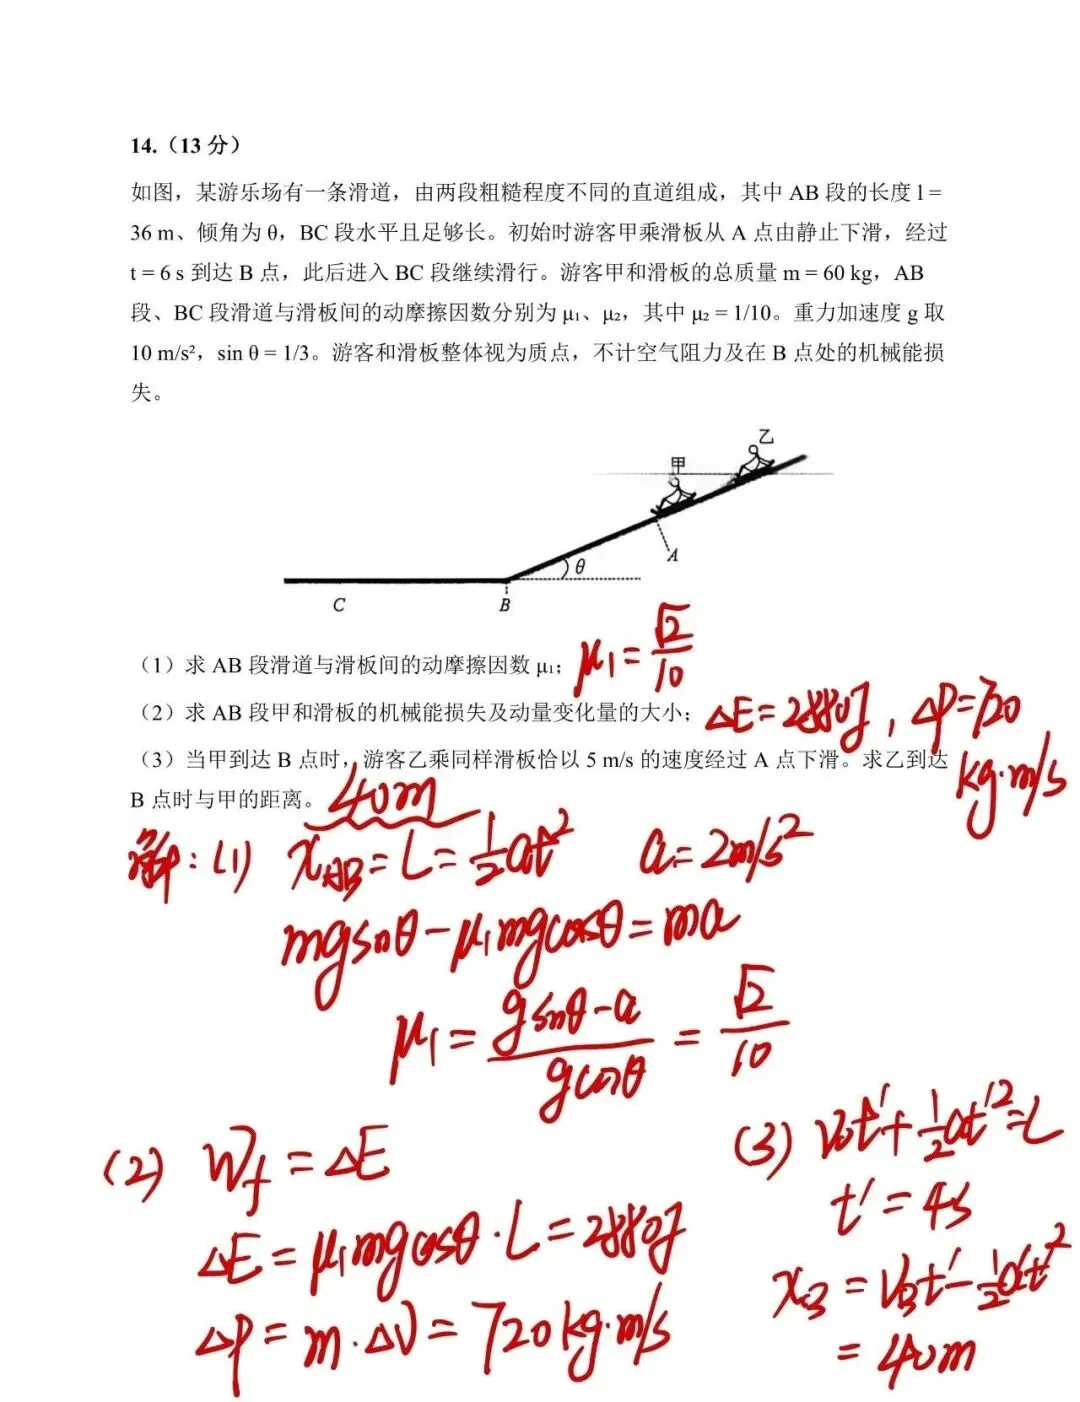 14.（13 分）
如图，某游乐场有一条滑道，由两段粗糙程度不同的直道组成，其中 AB 段的长度 l =
36 m、倾角为 θ，BC 段水平且足够长。初始时游客甲乘滑板从 A 点由静止下滑，经过
t = 6 s 到达 B 点，此后进入 BC 段继续滑行。游客甲和滑板的总质量 m = 60 kg，AB
段、BC 段滑道与滑板间的动摩擦因数分别为 μ₁、μ₂，其中 μ₂ = 1/10。重力加速度 g 取
10 m/s²，sin θ = 1/3。游客和滑板整体视为质点，不计空气阻力及在 B 点处的机械能损
失。
乙
甲
A
θ
C
B
（1）求 AB 段滑道与滑板间的动摩擦因数 μ₁； μ₁ = √2/10
（2）求 AB 段甲和滑板的机械能损失及动量变化量的大小； ΔE = 2880J，ΔP = 720
kg·m/s
（3）当甲到达 B 点时，游客乙乘同样滑板恰以 5 m/s 的速度经过 A 点下滑。求乙到达
B 点时与甲的距离。 40m
解：(1) x_AB = L = ½at² a = 2m/s²
mgsinθ - μ₁mgcosθ = ma
μ₁ = (gsinθ - a)/(gcosθ) = √2/10
(2) W_f = ΔE
ΔE = μ₁mgcosθ·L = 2880J
ΔP = m·ΔV = 720kg·m/s
(3) V₀t' + ½at'² = L
t' = 4s
x_B = V_Bt' - ½a't'²
= 40m